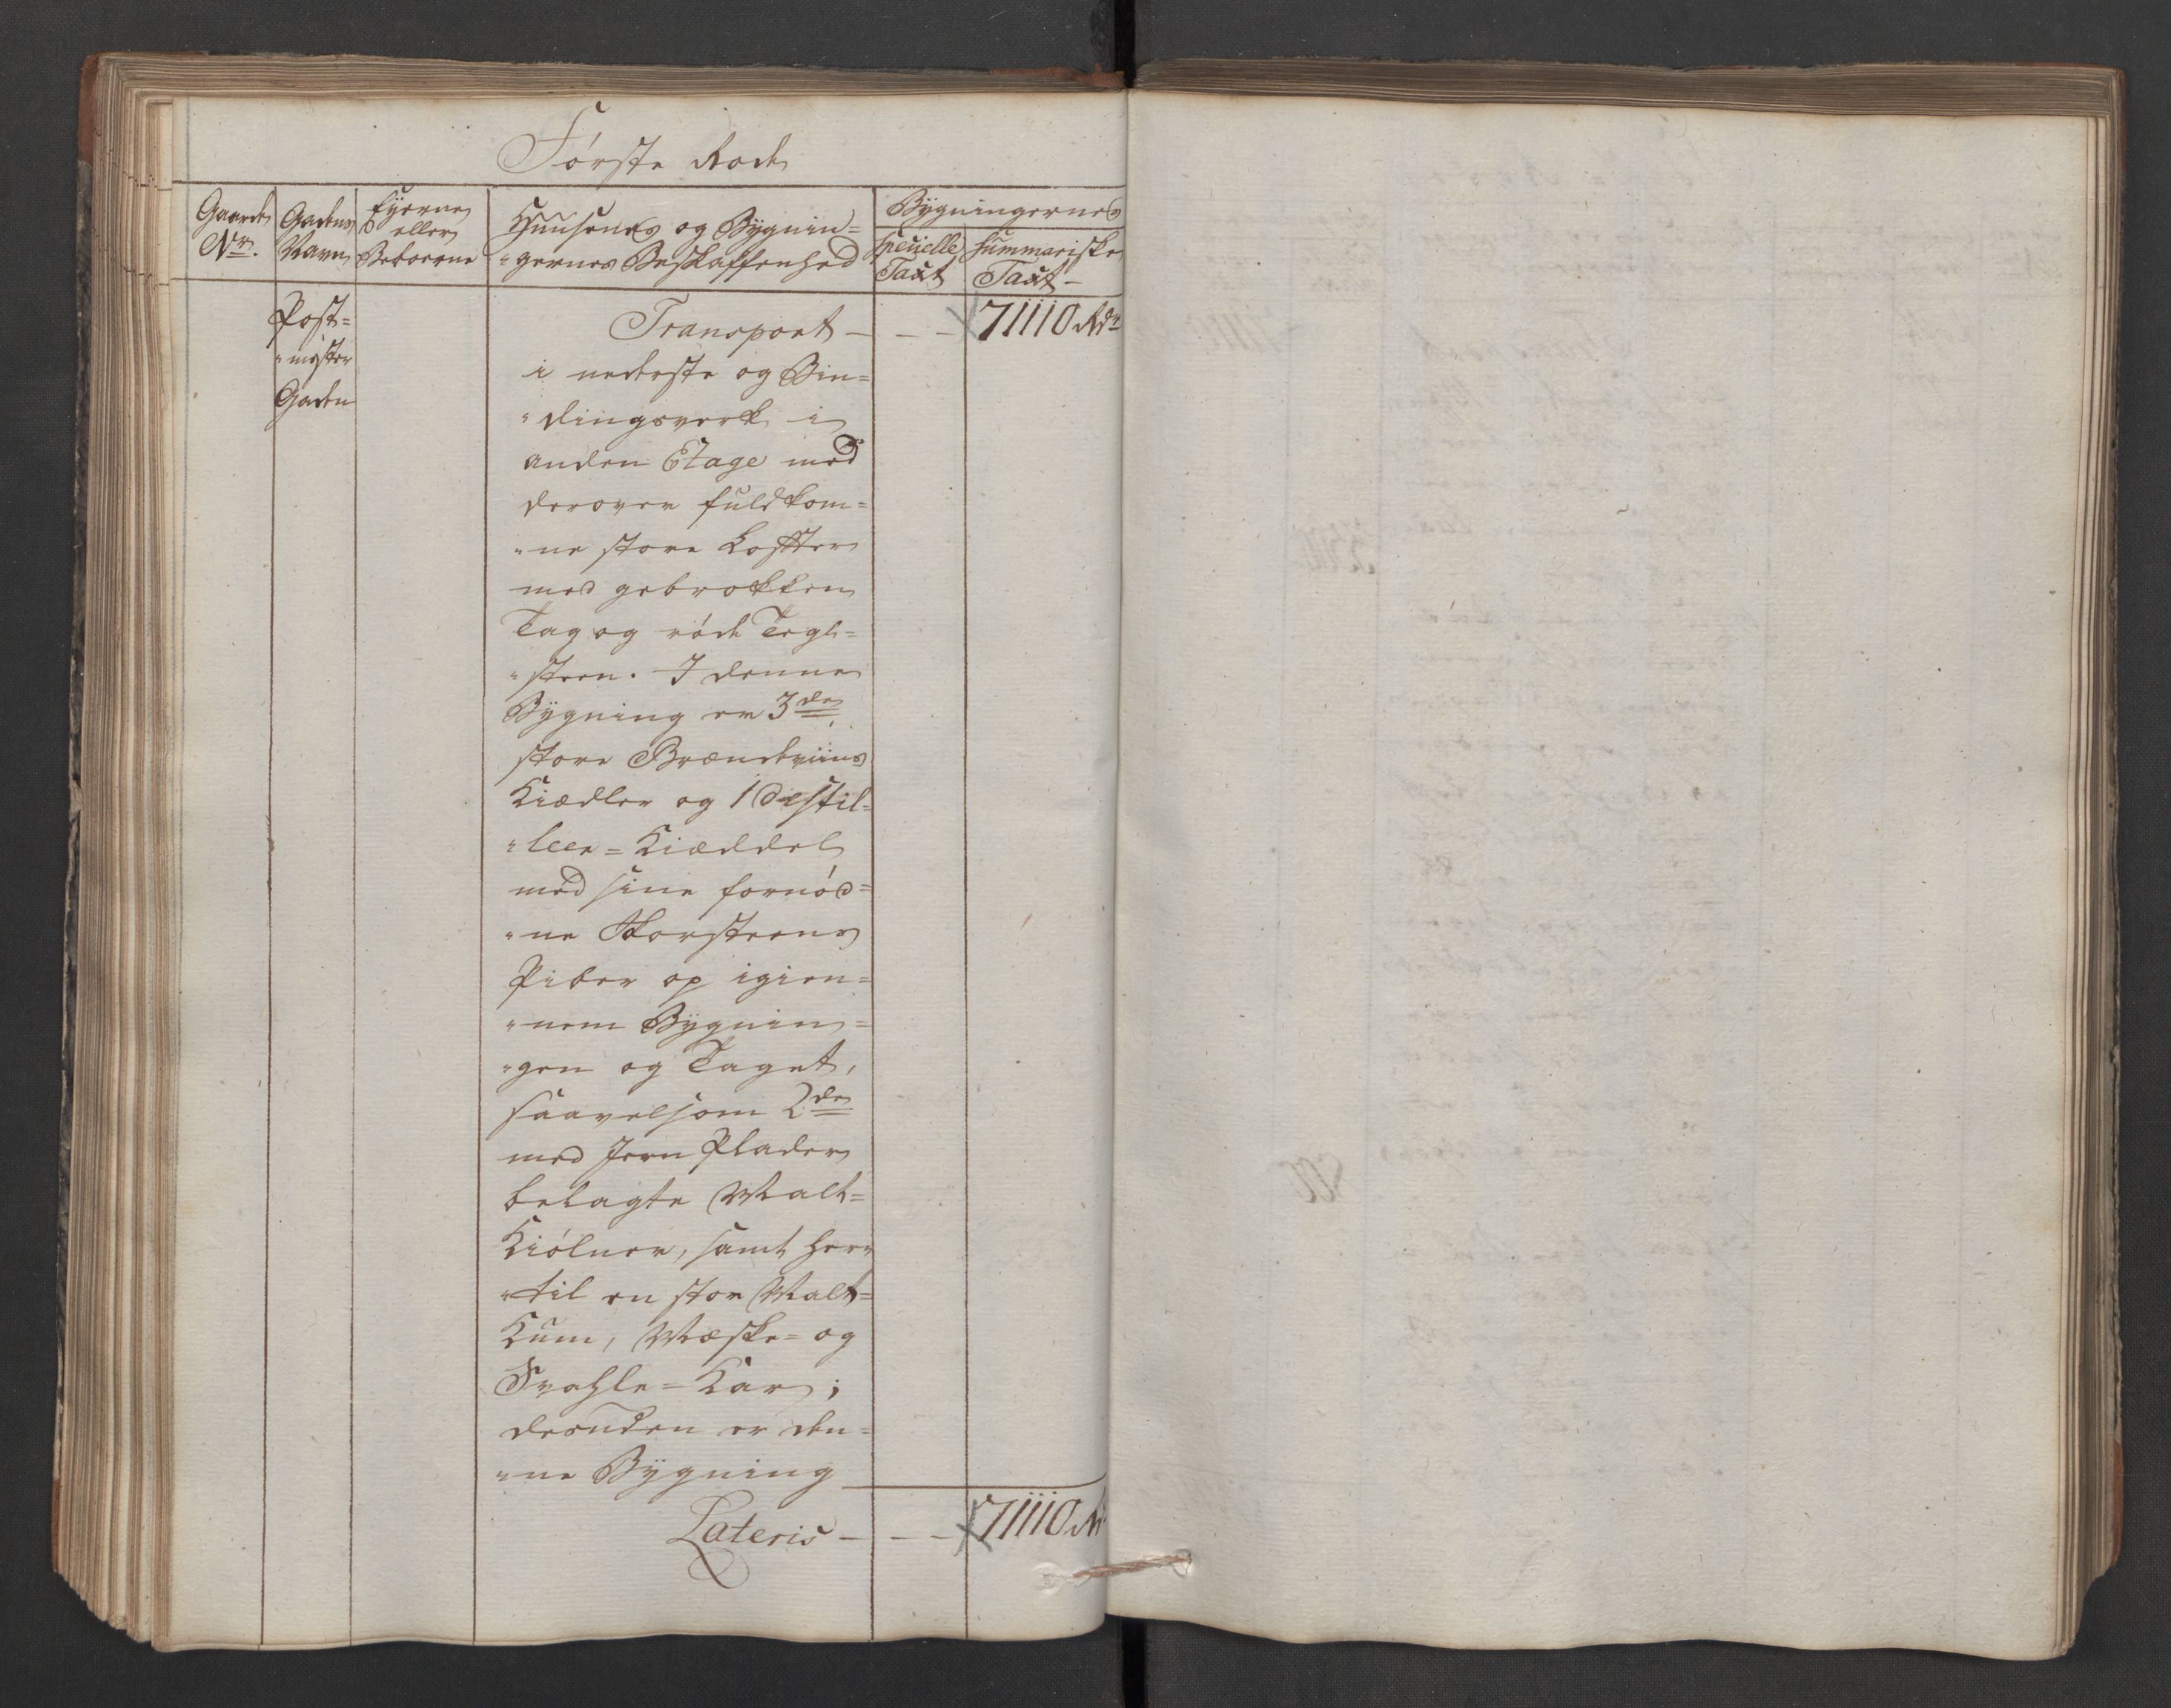 Første Rode
Gaardens Nr.
Gadens Navn
Eyerne eller Beboerne
Huusenes og Bygnin=
"gernes Beskaffenhed
Bygningernes
specielle Taxt
summariske Taxt -
Post=
"mester
Gaden
Transport - - - 71110 Rdr
i nederste og Bin=
"dingsverk i
anden Etage med
derover fuldkom=
"ne store Lofter
med gebrokken
Tag og røde Tegl=
"steen. I denne
Bygning er 3de
store Brændeviins
Kiædler og 1 Destil=
"leer=Kiæddel
med sine fornød=
"ne Skorsteens
Piber op igien=
"nem Bygnin=
"gen og Taget,
saavelsom 2de
med Jern Plader
belagte Malt=
Kiølner, samt her=
"til en stor Malt=
Kum, Mæske= og
Svahle=Kar;
desuden er den=
"ne Bygning
Lateris - - - 71110 Rd